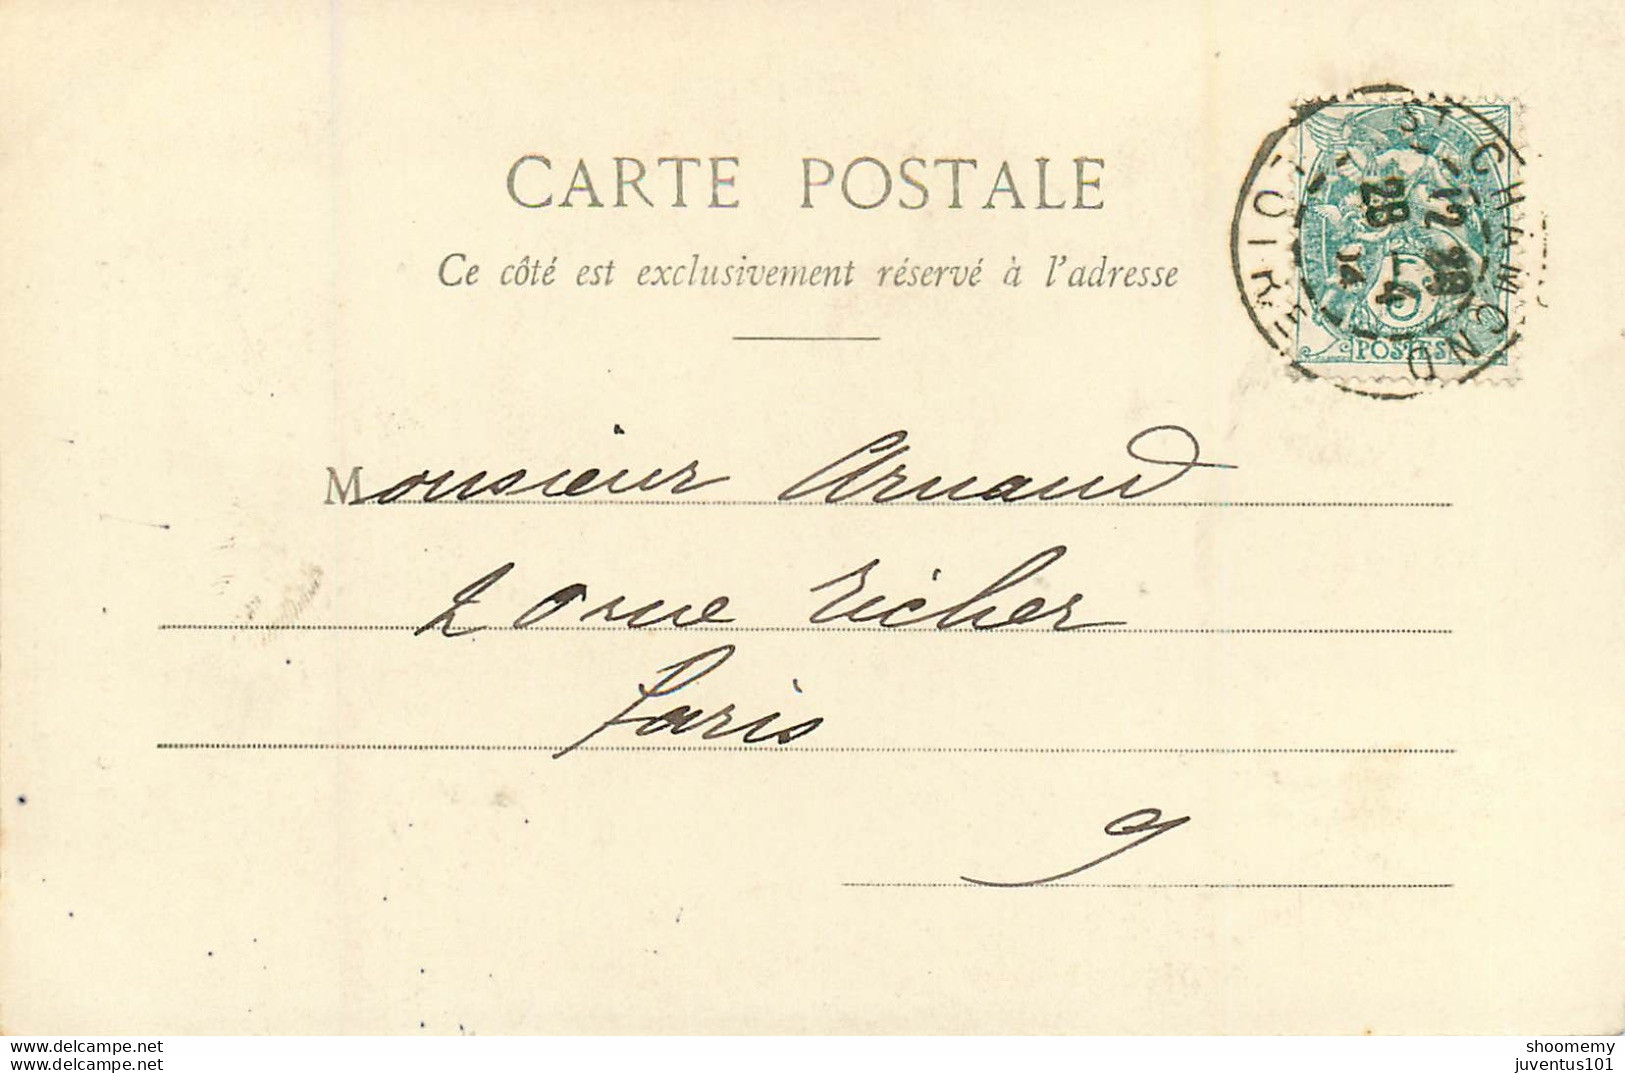 CARTE POSTALE
Ce côté est exclusivement réservé à l'adresse
Monsieur Arnaud
20 rue Richer
Paris
9
ST CHAMOND
LOIRE
12 39
28 - 4
14
5
POSTES
www.delcampe.net
www.delcampe.net
shoomemy
juventus101